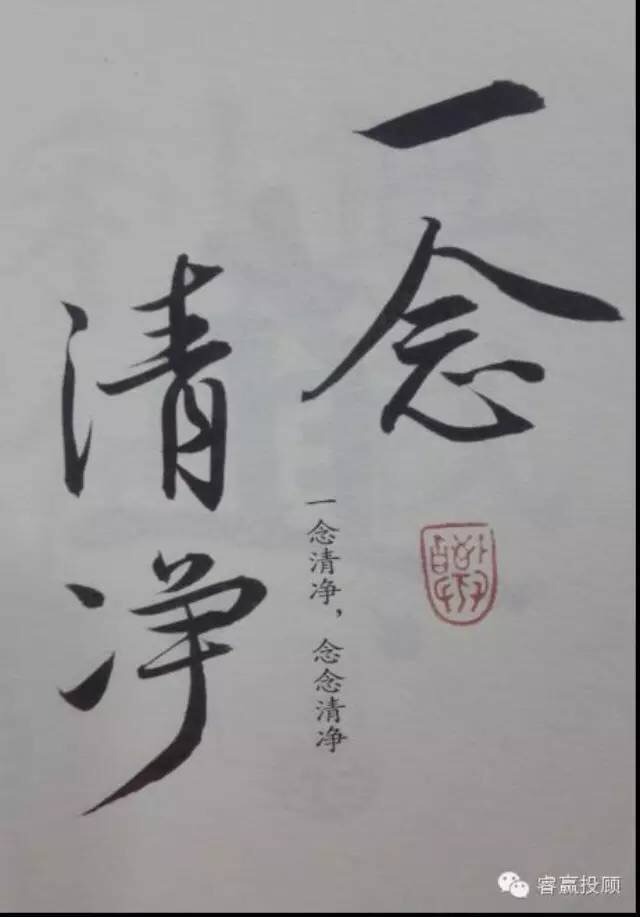 一念
清净
一念清净，念念清净
睿赢投顾